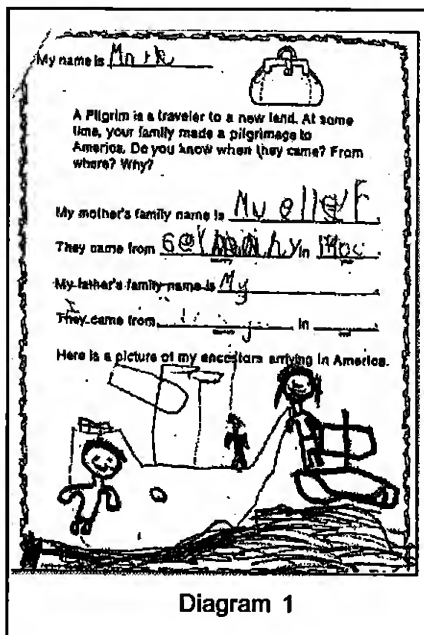 My name is Mark
A Pilgrim is a traveler to a new land. At some
time, your family made a pilgrimage to
America. Do you know when they came? From
where? Why?
My mother's family name is Mueller
They came from Germany in
My father's family name is My
They came from in
Here is a picture of my ancestors arriving in America.
Diagram 1